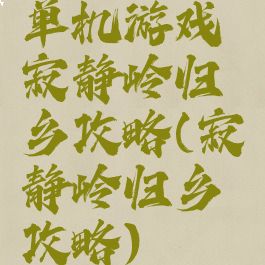 单机游戏
寂静岭归
乡攻略(寂
静岭归乡
攻略)